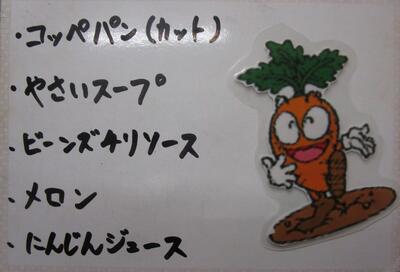 ・コッペパン(カット)
・やさいスープ
・ビーンズチリソース
・メロン
・にんじんジュース